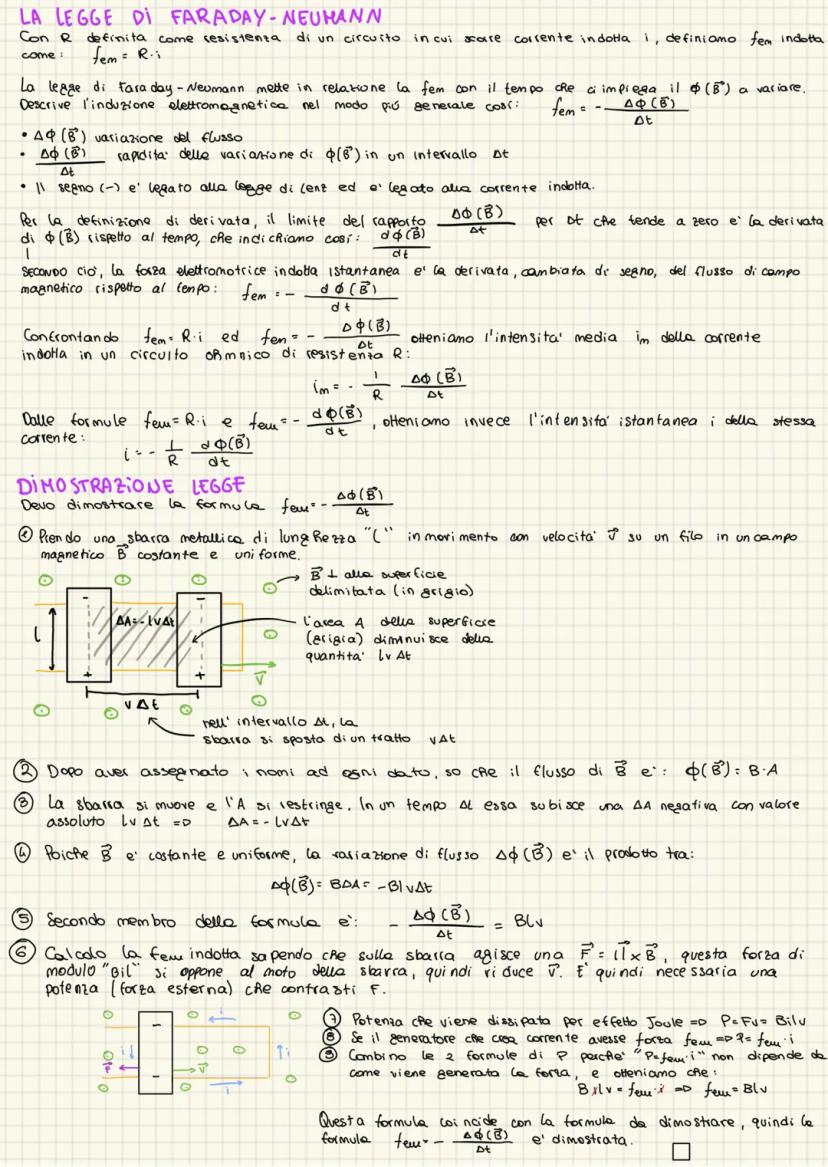 LA LEGGE DI FARADAY-NEUMANN
Con R definita come resistenza di un circuito in cui scorre corrente indotta i, definiamo fem indotta
come: fem = R·i
La legge di Faraday-Neumann mette in relazione la fem con il tempo che ci impiega il ϕ(B⃗) a variare.
Descrive l'induzione elettromagnetica nel modo più generale così: fem = - Δϕ(B⃗)/Δt
• Δϕ(B⃗) variazione del flusso
• Δϕ(B⃗)/Δt rapidita' della variazione di ϕ(B⃗) in un intervallo Δt
• Il segno (-) e' legato alla legge di Lenz ed e' legato alla corrente indotta.
Per la definizione di derivata, il limite del rapporto Δϕ(B⃗)/Δt per Δt che tende a zero e' la derivata
di ϕ(B⃗) rispetto al tempo, che indichiamo così: dϕ(B⃗)/dt
SECONDO ciò, la forza elettromotrice indotta istantanea e' la derivata, cambiata di segno, del flusso di campo
magnetico rispetto al tempo: fem = - dϕ(B⃗)/dt
Confrontando fem = R·i ed fem = - Δϕ(B⃗)/Δt otteniamo l'intensita' media im della corrente
indotta in un circuito ohmnico di resistenza R:
im = - 1/R Δϕ(B⃗)/Δt
Dalle formule fem = R·i e fem = - dϕ(B⃗)/dt, otteniamo invece l'intensita' istantanea i della stessa
corrente:
i = - 1/R dϕ(B⃗)/dt
DIMOSTRAZIONE LEGGE
Devo dimostrare la formula fem = - Δϕ(B⃗)/Δt
① Prendo una sbarra metallica di lunghezza "l" in movimento con velocita' v⃗ su un filo in un campo
magnetico B⃗ costante e uniforme.
B⃗ ⊥ alla superficie
delimitata (in grigio)
l'area A della superficie
(grigia) diminuisce della
quantita' lvΔt
- -
ΔA=-lvΔt
l
+ +
v⃗
vΔt
nell'intervallo Δt, la
sbarra si sposta di un tratto vΔt
② Dopo aver assegnato i nomi ad ogni dato, so che il flusso di B⃗ e': ϕ(B⃗) = B·A
③ La sbarra si muove e l'A si restringe. In un tempo Δt essa subisce una ΔA negativa con valore
assoluto lvΔt => ΔA = -lvΔt
④ Poiche B⃗ e' costante e uniforme, la variazione di flusso Δϕ(B⃗) e' il prodotto tra:
Δϕ(B⃗) = BΔA = -BlvΔt
⑤ Secondo membro della formula e': - Δϕ(B⃗)/Δt = Blv
⑥ Calcolo la fem indotta sapendo che sulla sbarra agisce una F⃗ = il⃗ × B⃗, questa forza di
modulo "Bil" si oppone al moto della sbarra, quindi riduce v⃗. E' quindi necessaria una
potenza (forza esterna) che contrasti F.
- i
i i
F⃗ v⃗
+ i
⑦ Potenza che viene dissipata per effetto Joule => P=Fv=Bilv
⑧ Se il generatore che crea corrente avesse forza fem => P=fem·i
⑨ Combino le 2 formule di P perche' "P=fem·i" non dipende da
come viene generata la forza, e otteniamo che:
Bilv = fem·i => fem = Blv
Questa formula coincide con la formula da dimostrare, quindi la
formula fem = - Δϕ(B⃗)/Δt e' dimostrata. □